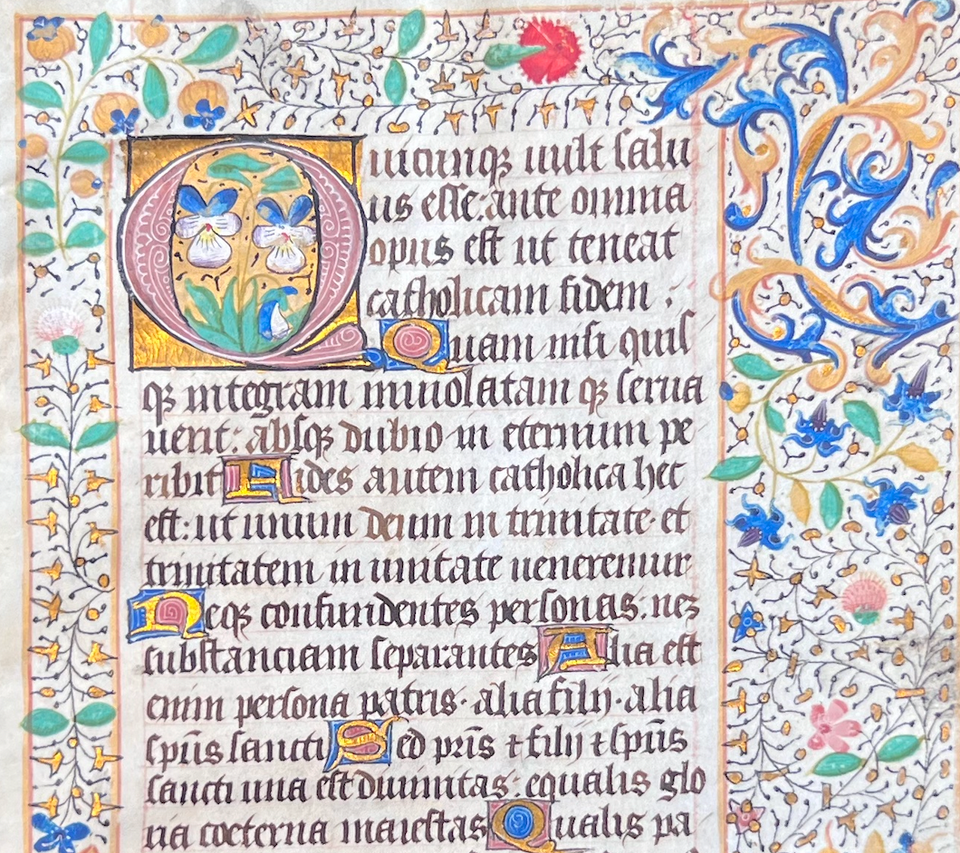 Quicunqꝫ uult salu
us esse: ante omnia
opus est ut teneat
catholicam fidem :
Quam nisi quis
qꝫ integram inuiolatam qꝫ serua
uerit: absqꝫ dubio in eternum pe
ribit Fides autem catholica hec
est: ut unum deum in trinitate· et
trinitatem in unitate ueneremur
Neqꝫ confundentes personas: neqꝫ
substanciam separantes Alia est
enim persona patris· alia filij· alia
sp̄us sancti Sed pr̄is ⁊ filij ⁊ sp̄us
sancti una est diuinitas: equalis glo
ria coeterna maiestas Qualis pa